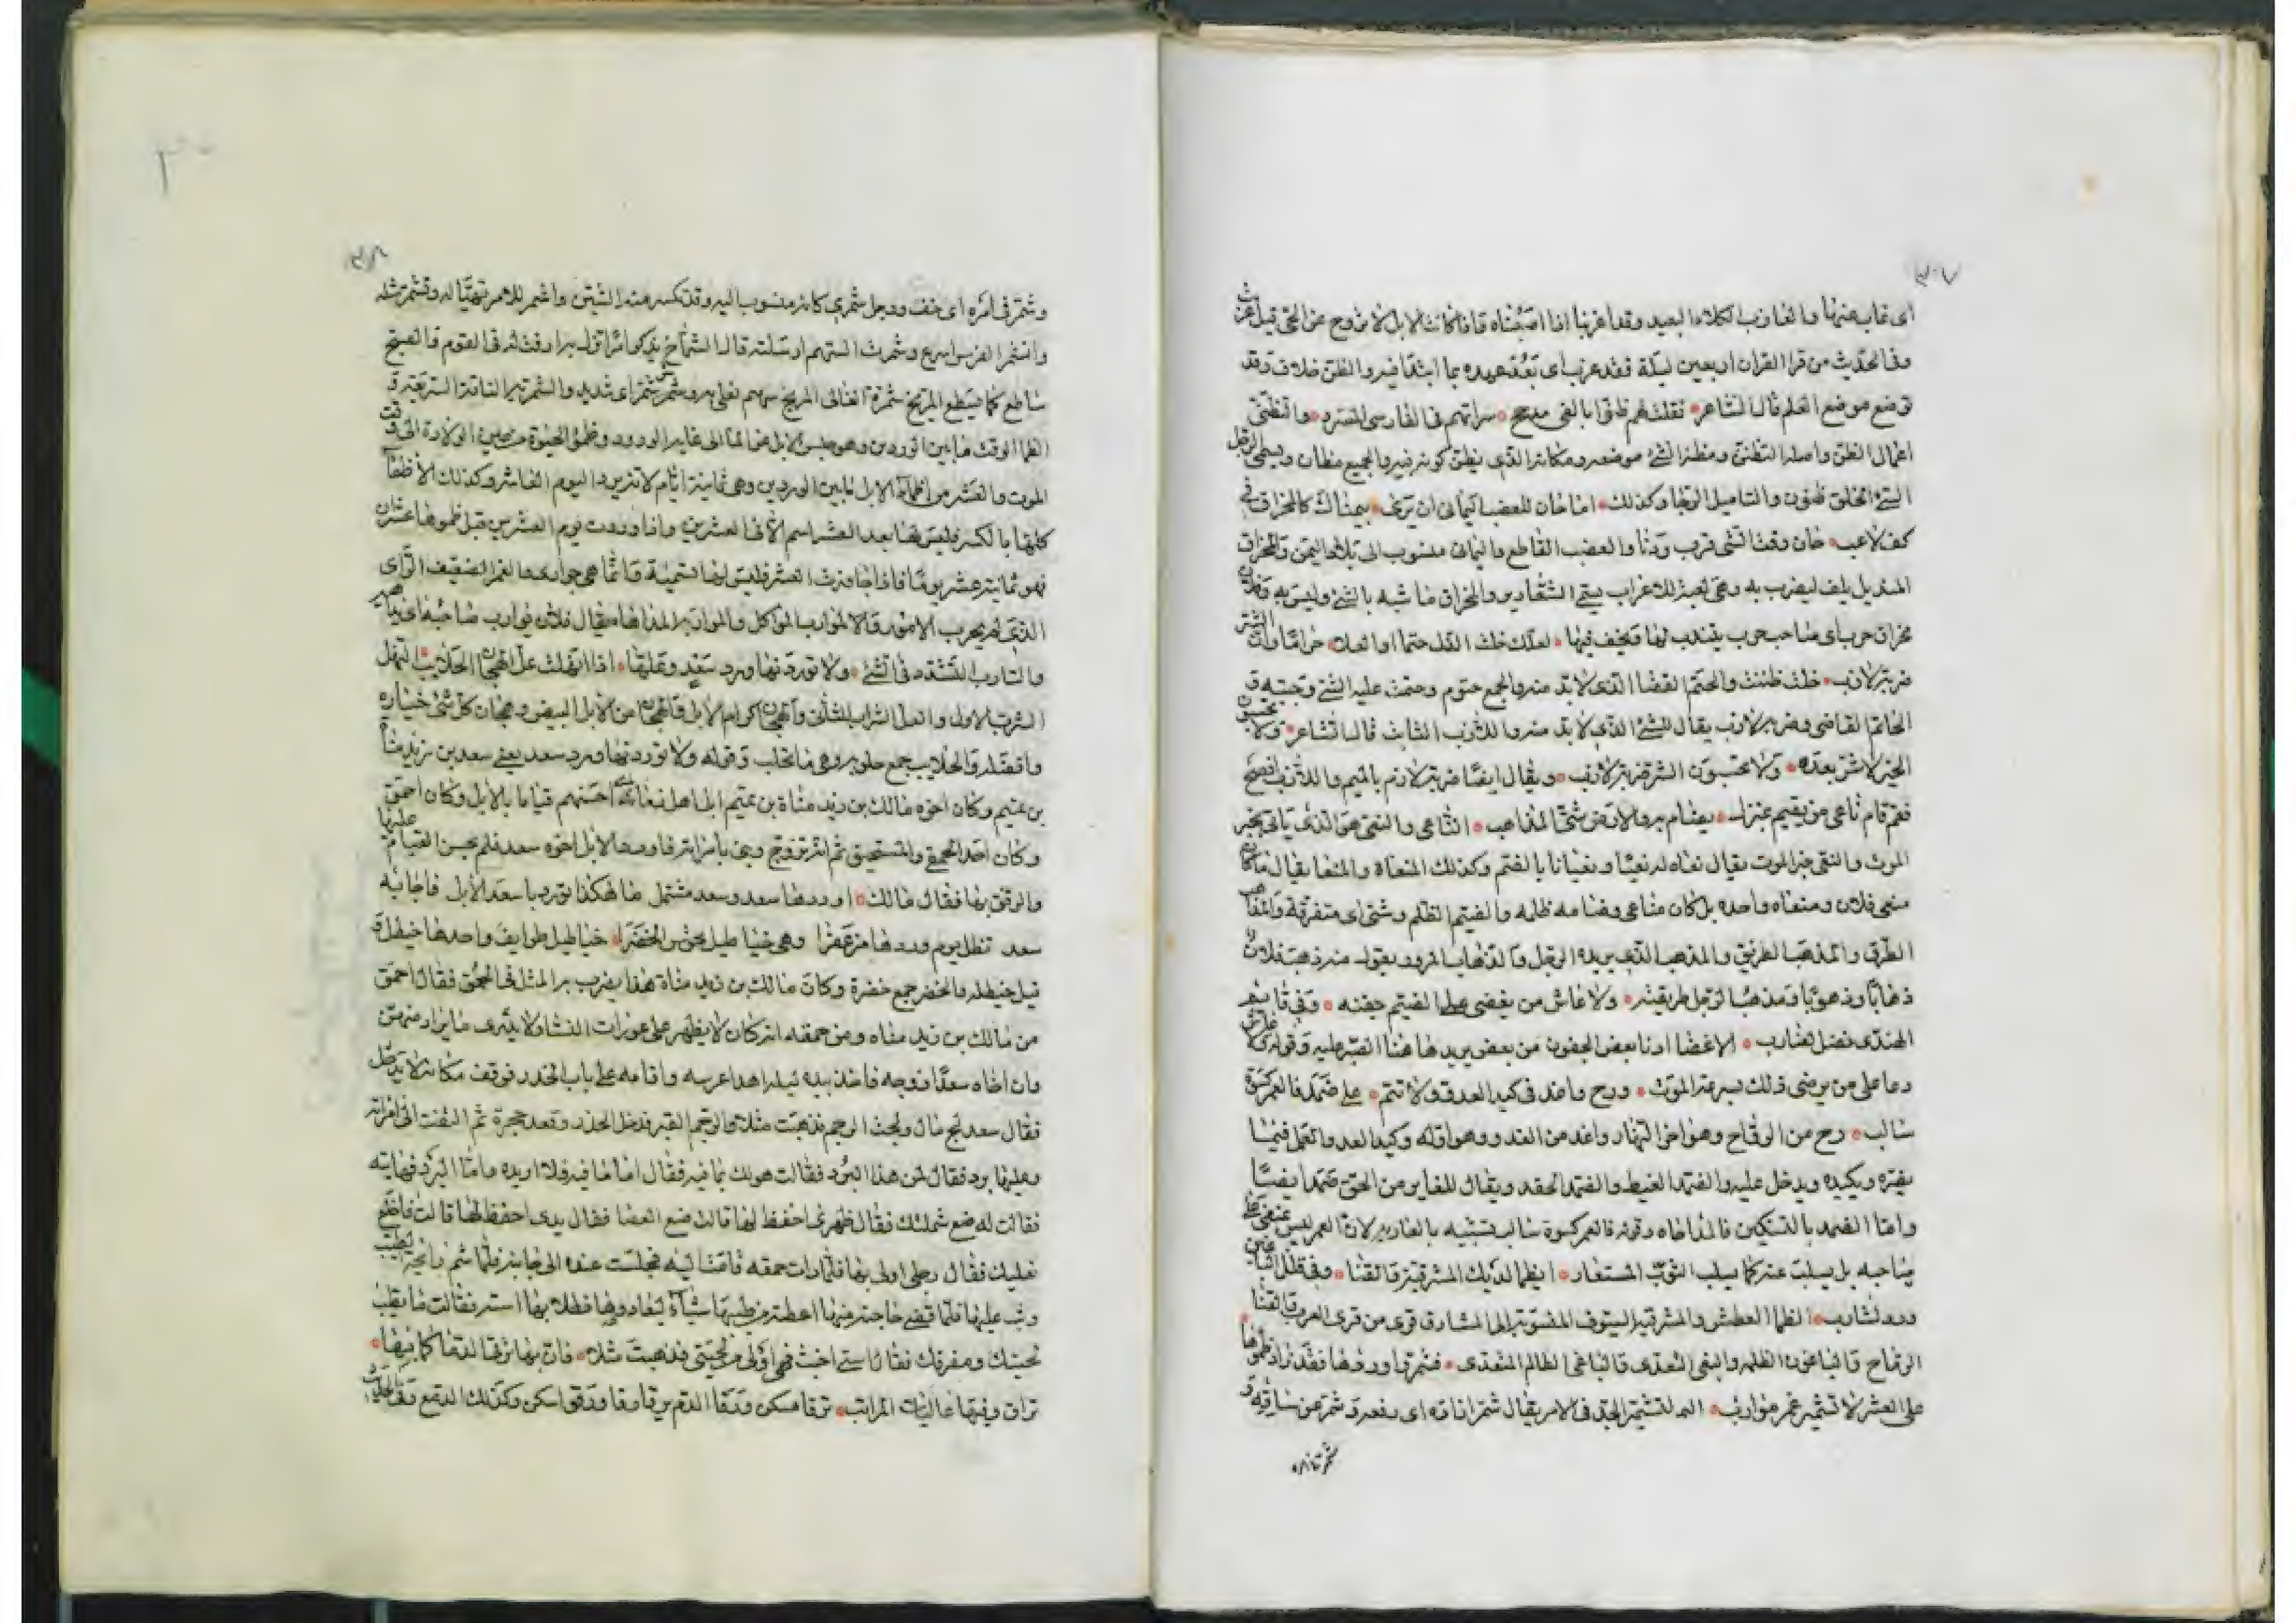 ٣٠٧
اى غاب عنها والعازب الكلاء البعيد وقد اعزبنا اذا اصبناه فاذا كانت الابل لا تروح عن الحى قيل عزبت
وفى الحديث من قرا القران اربعين ليلة فقد عزب اى بعد عهده بما ابتدا فيه والظن خلاف وقد
توضع موضع العلم قال الشاعر فقلت لهم ظنوا بالفى مدجج سراتهم فى الفارسى المسرد والتظنى
اعمال الظن واصله التظنن ومظنة الشئ موضعه ومكانه الذى يظن كونه فيه والجميع مظان ويسمى الرجل
السئ الخلق ظنون والتاميل الرجا وكذلك اما خان للعضب اليمانى ان يرى بيمناك كالمخراق فى
كف لاعب خان وقت الشى قرب ودنا والعضب القاطع واليمانى منسوب الى بلاد اليمن والمخراق
المنديل يلف ليضرب به وهى لعبة للاعراب والمخراق ما شبه بالشئ وليس به وفلان
مخراق حرب اى صاحب حرب يتندب لها ويخف فيها لعلك خلت الذل حتما او العلا حراما وان الشر
ضربة لازب خلت ظننت والحتم القضا الذى لابد منه والجمع حتوم وحتمت عليه الشئ وجبته و
الحاتم القاضى وضربة لازب يقال للشئ الذى لابد منه واللازب الثابت قال الشاعر ولا يحسبون
الخير لا شر بعده ولا يحسبون الشر ضربة لازب ويقال ايضا ضربة لازم بالميم واللازب افصح
فقم قام ناعى من يقيم بمنزل يضام به والارض شتى المذاهب الناعى والنعى هو الذى ياتى بخبر
الموت والنعى خبر الموت يقال نعاه له نعيا ونعيانا بالضم وكذلك المنعاة والمنعا يقال ما كان
منعى فلان ومنعاه واحده بل كان مناعى وضامه ظلمه والضيم الظلم وشتى اى متفرقة والمذاهب
الطرق والمذهب الطريق والمذهب الذى يريده الرجل والذهاب المرور يقول منه ذهب فلان
ذهابا وذهوبا ومذهب الرجل طريقته ولا عاش من يغضى على الضيم جفنه وفى قايم
الهندى فضل لضارب الاغضا ادنا بعض الجفون من بعض يريد هاهنا الصبر عليه وقوله لا عاش
دعا على من يرضى ذلك بسرعة الموت ورح واغد فى كيد العدو ولا تنم على ضمد فالعمر كسوة
سالب رح من الرواح وهو اخر النهار واغد من الغد وهو اوله وكيد العدو العمل فيما
يضره ويكيده ويدخل عليه والضمد الغيظ والضمد الحقد ويقال للغابر من الحق ضمد ايضا
واما الضمد بالتسكين فالمداجاه وقوله فالعمر كسوة سالب تشبيه بالعارية لان العمر ليس
صاحبه بل يسلب عنه كما يسلب الثوب المستعار ايظما لديك المشرفية والقنا وفى
ورد لشارب الظما العطش والمشرفية السيوف المنسوبة الى المشارف قرى من قرى العرب والقنا
الرماح والباغون الظلمه والبغى التعدى والباغى الظالم المتعدى فشمر واوردها فقد زاد ظموها
على العشر لا تشمير غمر موارب التشمير الجد فى الامر يقال شمر ازاره اى رفعه وشمر عن ساقه و
٣٠٨
وشمر فى امره اى خف ورجل شمرى كانه منسوب اليه وقد تكسر منه الشين واشمر للامر تهيا له وتشمر مثله
وانشمر الفرس اسرع وشمرت السهم ارسلته قال الشماخ يذكر ارقت له فى القوم والصبح
ساطع كما سطع المريخ شمره الغالى المريخ سهم يغلى به وشر شمر اى شديد والشمرية الناقة السريعة و
الظما الوقت ما بين الوردين وهو حبس الابل عن الما الى غاية الورود وظمؤ الحيوة من حين الولادة الى وقت
الموت والعشر من اظماء الابل ما بين الوردين وهى ثمانية ايام لا تزيد اليوم العاشر وكذلك الاظماء
كلها بالكسر وليس لها بعد العشر اسم الا فى العشرين واذا وردت يوم العشرين قيل ظموها عشران
فهو ثمانية عشر يوما فاذا جاوزت العشر فليس لها تسمية وانما هى جوازى والغمر الضعيف الراى
الذى لم يجرب الامور والموارب المواكل والمواربة المداهاه يقال فلان يوارب صاحبه
والتارب التشدد فى الشئ ولا توردنها ورد سعد وعلها اذا انهلت عل الهجان الحلايب النهل
الشرب الاول والعل الشراب الثانى والهجان كرام الابل والهجان من الابل البيض وهجان كل شئ خياره
وافضله والحلايب جمع حلوبه وهى ما تحلب وقوله ولا توردنها ورد سعد يعنى سعد بن زيد مناة
بن تميم وكان اخوه مالك بن زيد مناة بن تميم ابل اهل زمانه احسنهم قياما بالابل وكان احمق
وكان احد الحمقى والمستحمق ثم انه تزوج وبنى بامراته فاورد الابل اخوه سعد فلم يحسن القيام عليها
والرفق بها فقال مالك اوردها سعد وسعد مشتمل ما هكذا تورد يا سعد الابل فاجابه
سعد تظل يوم وردها مزعفرا وهى خناطيل تجوس الخضرا خناطيل طوايف واحدها خنطل و
قيل خنطله والخضر جمع خضرة وكان مالك بن زيد مناة هذا يضرب به المثل فى الحمق فقال احمق
من مالك بن زيد مناه ومن حمقه انه كان لا يظهر على عورات النسا ولا يدرى ما يراد منهن
وان اخاه سعدا زوجه فاخذ بيده ليلة اهدا عرسه واقامه على باب الخدر فوقف مكانه لا يدخل
فقال سعد لج مال ولجت الرجم فذهبت مثلا والرجم القبر فدخل الخدر وقعد حجرة ثم التفت الى امراته
وعليها برد فقال لمن هذا البرد فقالت هو لك بما فيه فقال اما ما فيه فلا اريده واما البرد فهاتيه
فقالت له ضع شملتك فقال ظهرى احفظ لها قالت ضع العصا فقال يدى احفظ لها قالت فاخلع
نعليك فقال رجلى اولى بها فلما رات حمقه قامت اليه فجلست عنده الى جانبه فلما شم رائحة الطيب
وثب عليها فلما قضى حاجته منها اعطته من طيبها شيأ فقالت ما يطيب
لحيتك ومفرقك فقال استى اخبث فهى اولى من لحيتى فذهبت مثلا فان بها ترقا الدما كما بها
تراق وفيها عاليات المراتب ترقا تسكن ورقا الدم يرقا رقا ورقو اسكن وكذلك الدمع
شمر ثانيه